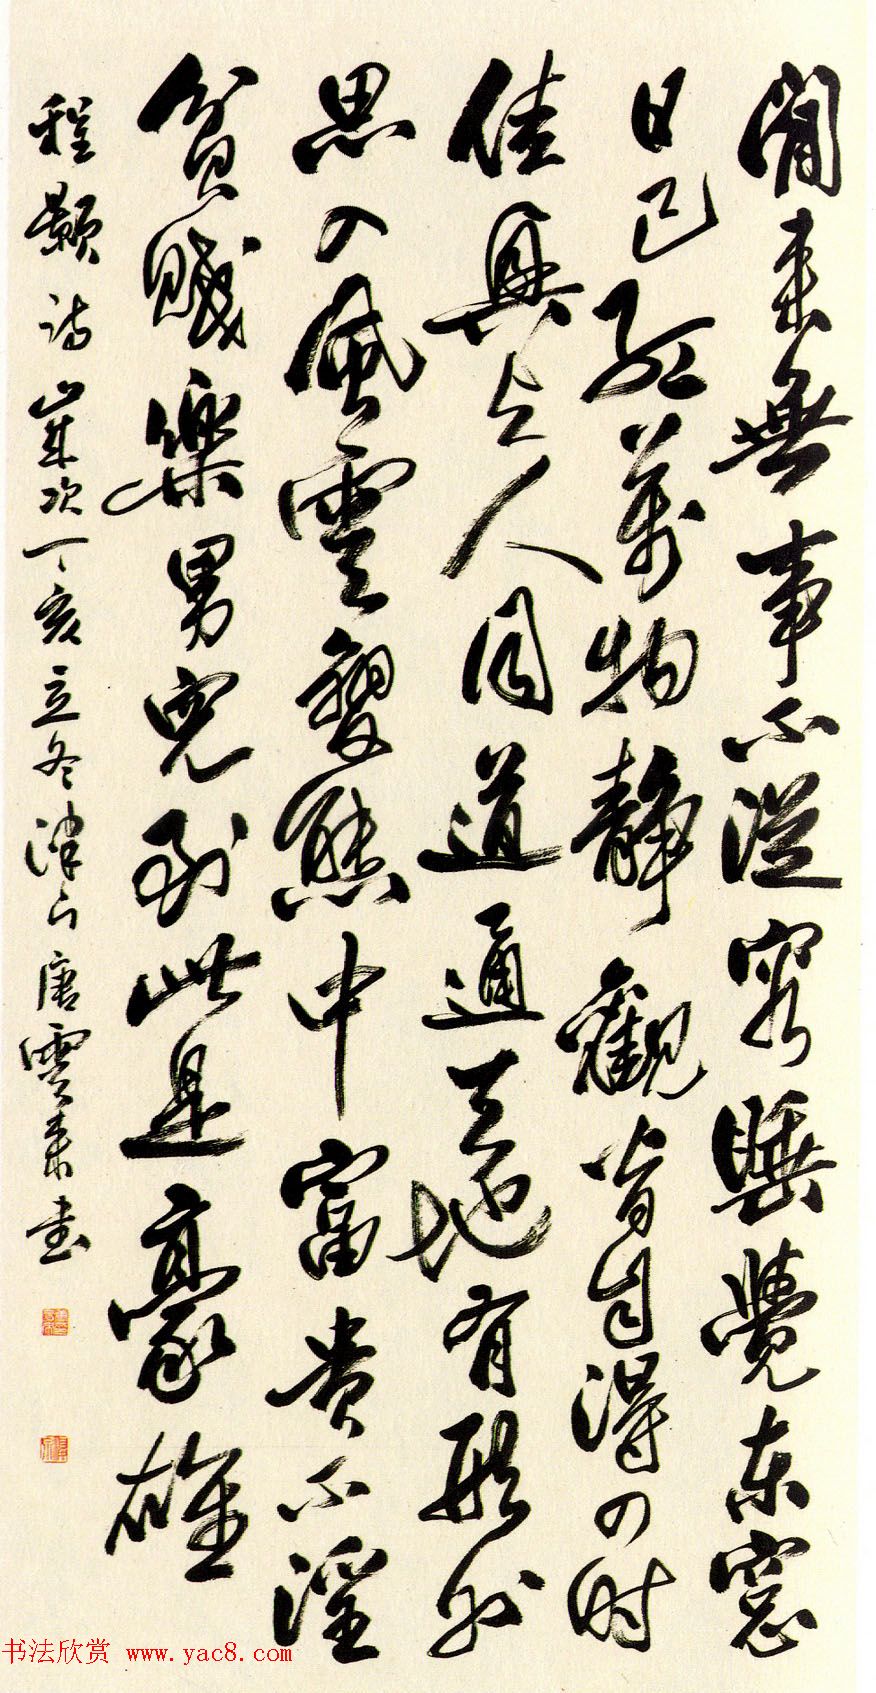 閒来無事不從容睡覺東窓
日已紅萬物静觀皆自得四时
佳興与人同道通天地有形外
思入風雲變態中富贵不淫
貧賤樂男兒到此是豪雄
程颢诗嵗次丁亥立冬津门唐雲来书
书法欣赏 www.yac8.com